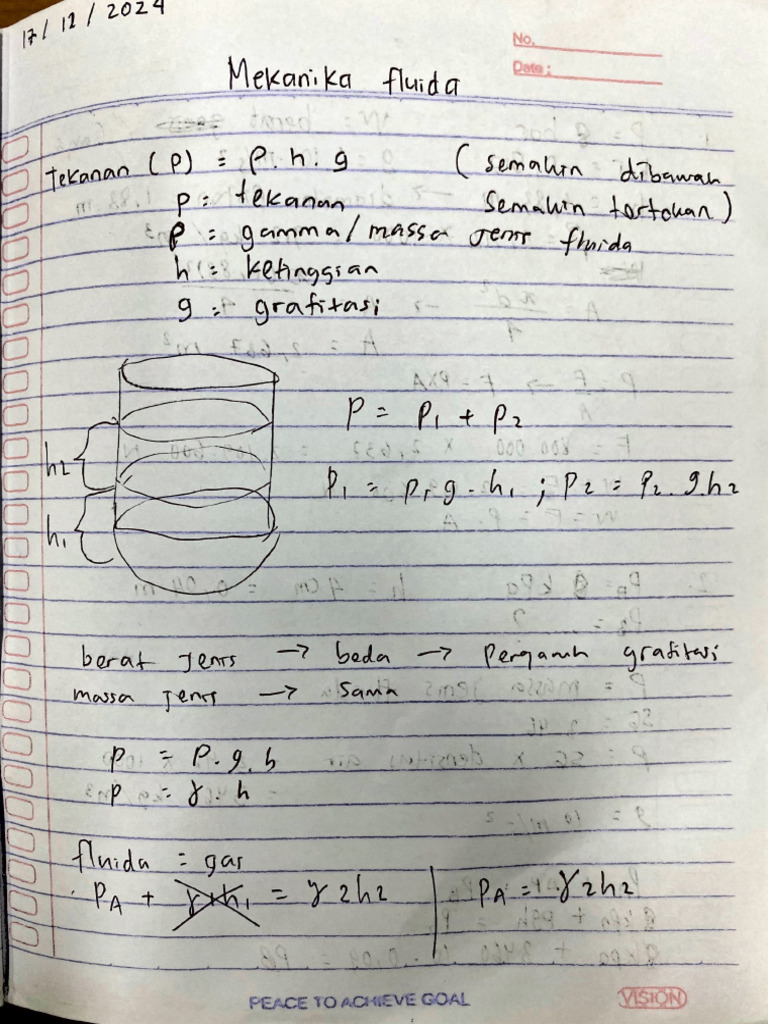 17/12/2024
No.
Date :
Mekanika fluida
Tekanan (P) = ρ. h. g (semakin dibawah
P = tekanan semakin tertekan)
ρ = gamma/massa jenis fluida
h = ketinggian
g = grafitasi
P = P1 + P2
h2
P1 = ρ1 g . h1 ; P2 = ρ2 . g.h2
h1
berat jenis → beda → pengaruh grafitasi
massa jenis → sama
P = ρ. g. h
P = γ. h
fluida = gas
PA + γ1h1 = γ2h2 | PA = γ2h2
PEACE TO ACHIEVE GOAL
VISION